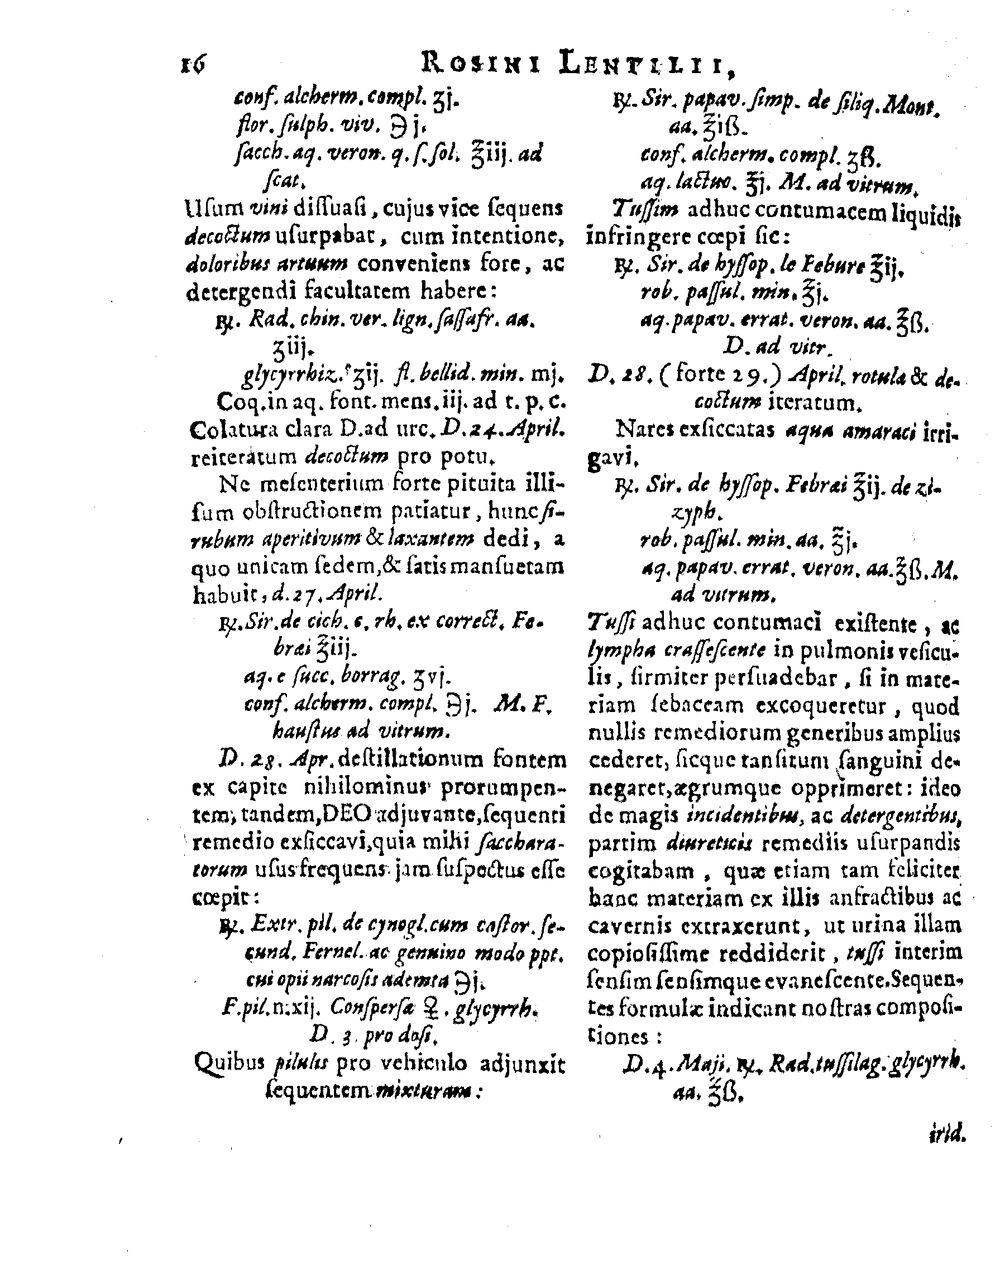 16
ROSINI LENTILII,
conf. alcherm. compl. ʒj.
flor. ſulph. viv. ℈j.
ſacch. aq. veron. q. ſ. ſol. ℥iij. ad
ſcat.
Uſum vini diſſuaſi, cujus vice ſequens
decoctum uſurpabat, cum intentione,
doloribus artuum conveniens fore, ac
detergendi facultatem habere:
℞. Rad. chin. ver. lign. ſaſſafr. aa.
ʒiij.
glycyrrhiz. ʒij. fl. bellid. min. mj.
Coq. in aq. font. mens. iij. ad t. p. c.
Colatura clara D. ad urc. D. 24. April.
reiteratum decoctum pro potu.
Ne meſenterium forte pituita illi-
ſum obſtructionem patiatur, hunc ſi-
rubum aperitivum & laxantem dedi, a
quo unicam ſedem, & ſatis manſuetam
habuit, d. 27. April.
℞. Sir. de cich. c. rh. ex correct. Fe-
bræi ℥iij.
aq. e ſucc. borrag. ʒvj.
conf. alcherm. compl. ℈j. M. F.
hauſtus ad vitrum.
D. 28. Apr. deſtillationum fontem
ex capite nihilominus prorumpen-
tem, tandem, DEO adjuvante, ſequenti
remedio exſiccavi, quia mihi ſacchara-
torum uſus frequens jam ſuſpectus eſſe
cœpit:
℞. Extr. pil. de cynogl. cum caſtor. ſe-
cund. Fernel. ac genuino modo ppt.
cui opii narcoſis ademta ℈j.
F. pil. n. xij. Conſperſæ ♀. glycyrrh.
D. 3. pro doſi.
Quibus pilulis pro vehiculo adjunxit
ſequentem mixturam:
℞. Sir. papav. ſimp. de ſiliq. Mont.
aa. ℥iß.
conf. alcherm. compl. ʒß.
aq. lactuc. ℥j. M. ad vitrum.
Tuſſim adhuc contumacem liquidis
infringere cœpi ſic:
℞. Sir. de hyſſop. le Febure ℥ij.
rob. paſſul. min. ℥j.
aq. papav. errat. veron. aa. ℥ß.
D. ad vitr.
D. 28. (forte 29.) April. rotula & de-
coctum iteratum.
Nares exſiccatas aqua amaraci irri-
gavi.
℞. Sir. de hyſſop. Febræi ℥ij. de zi-
zyph.
rob. paſſul. min. aa. ℥j.
aq. papav. errat. veron. aa. ℥ß. M.
ad vitrum.
Tuſſi adhuc contumaci exiſtente, ac
lympha craſſeſcente in pulmonis veſicu-
lis, firmiter perſuadebar, ſi in mate-
riam ſebaceam excoqueretur, quod
nullis remediorum generibus amplius
cederet, ſicque tanſitum ſanguini de-
negaret, ægrumque opprimeret: ideo
de magis incidentibus, ac detergentibus,
partim diureticis remediis uſurpandis
cogitabam, quæ etiam tam feliciter
hanc materiam ex illis anfractibus ac
cavernis extraxerunt, ut urina illam
copioſiſſime reddiderit, tuſſi interim
ſenſim ſenſimque evaneſcente. Sequen-
tes formulæ indicant noſtras compoſi-
tiones:
D. 4. Maji. ℞. Rad. tuſſilag. glycyrrh.
aa. ℥ß.
irid.